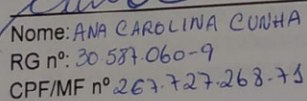 Nome: ANA CAROLINA CUNHA
RG nº: 30.587.060-9
CPF/MF nº 267.727.268-71